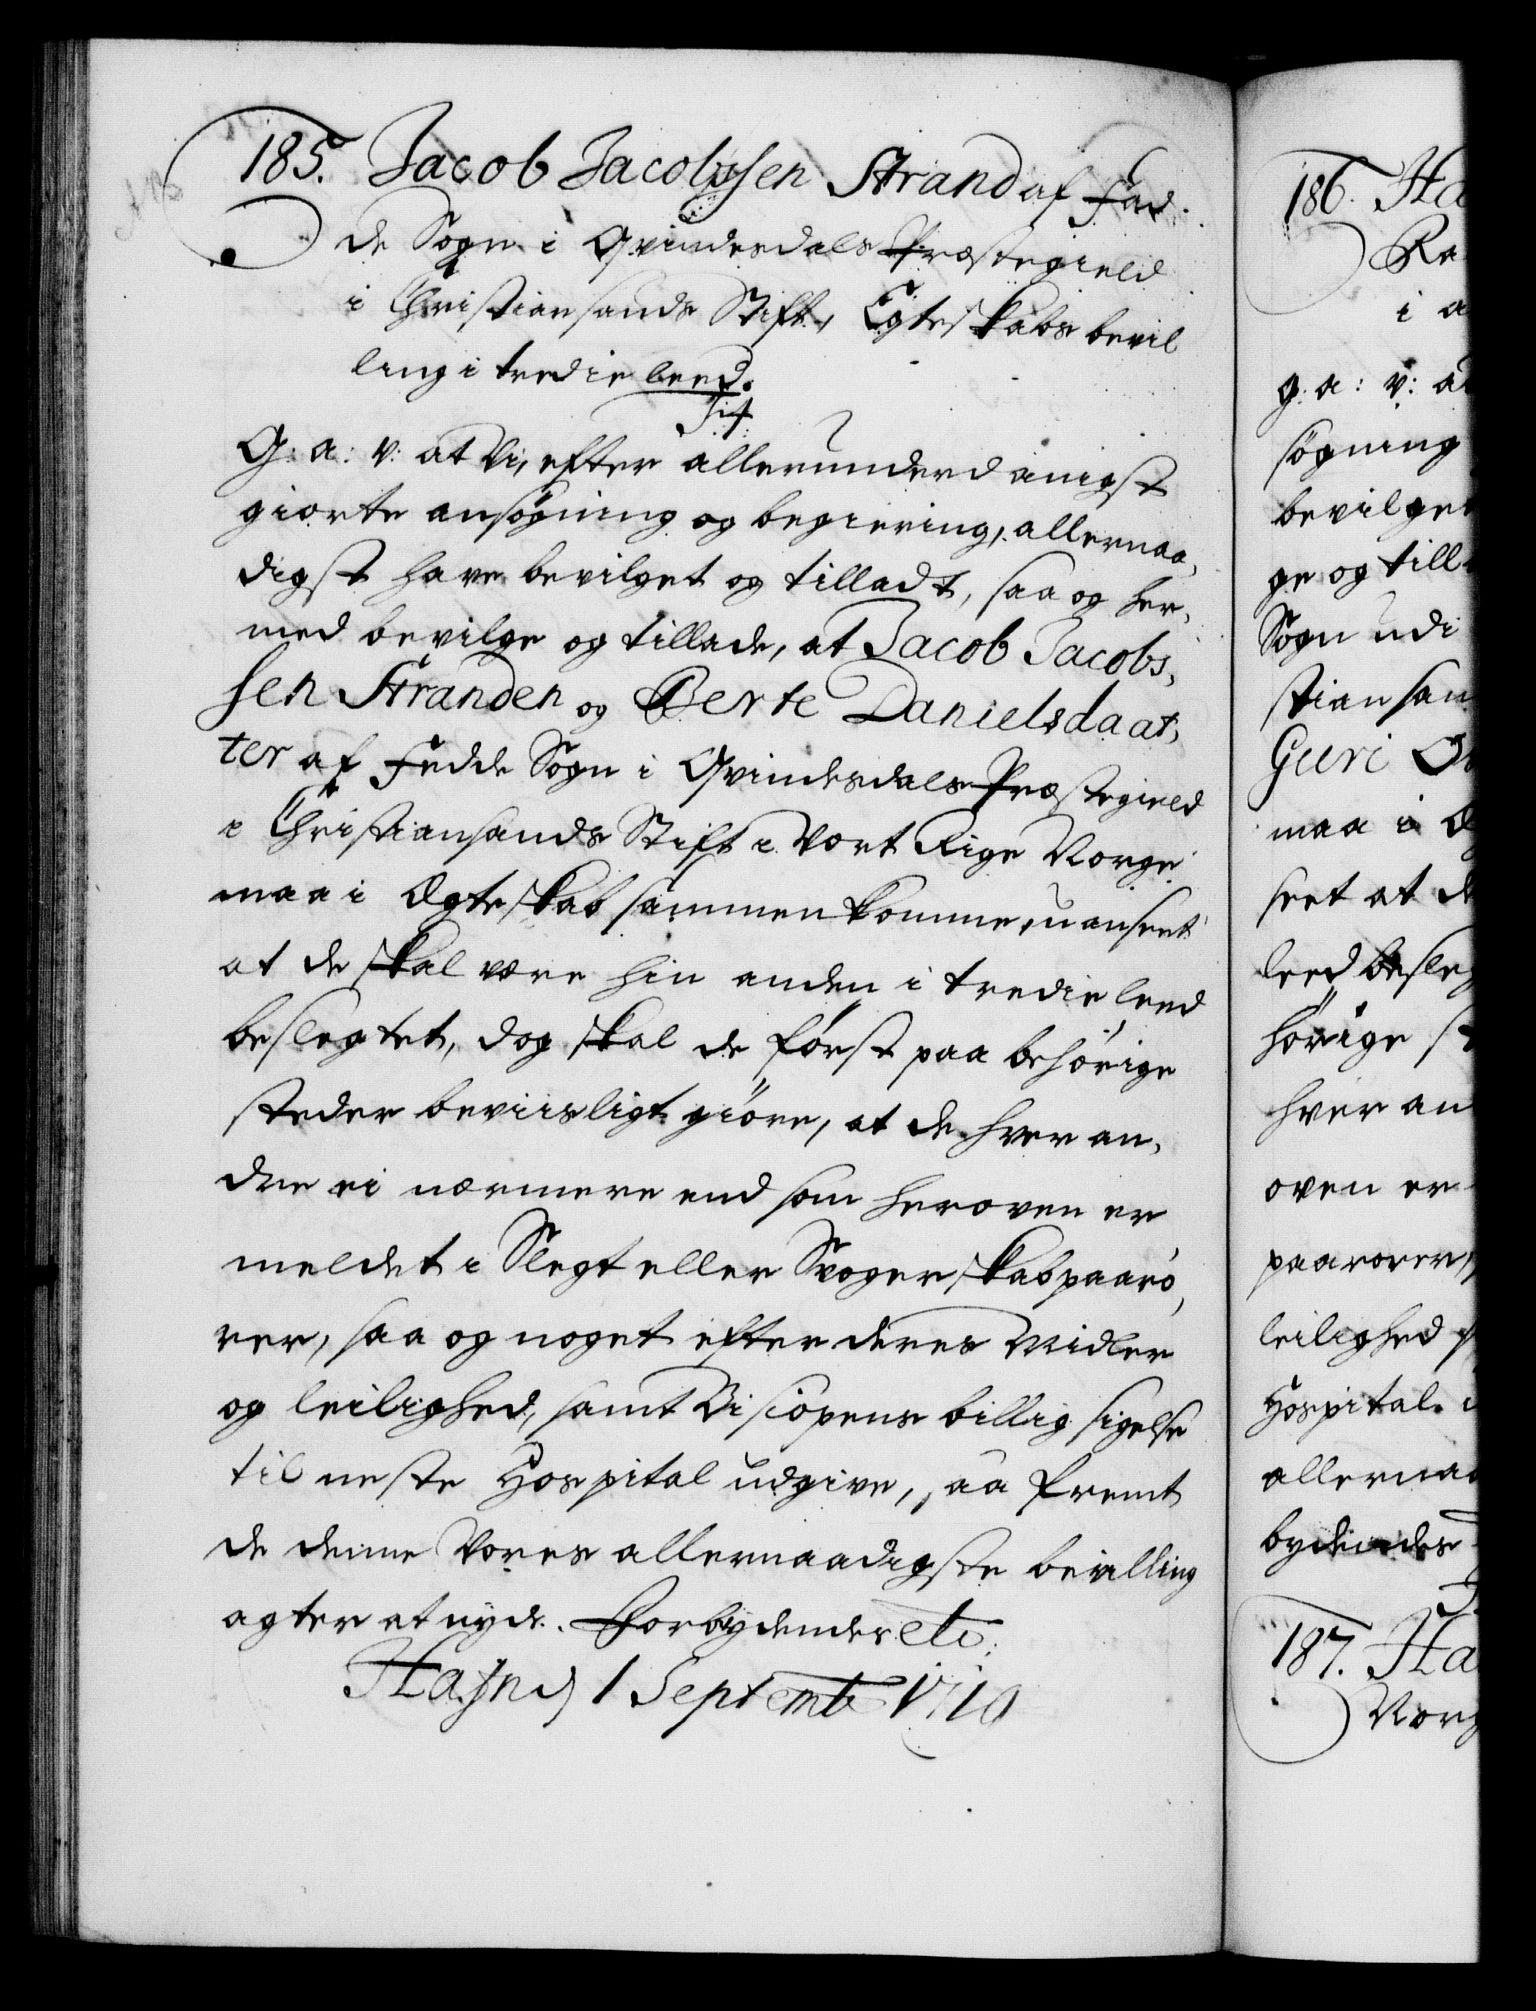 185. Jacob Jacobssen Strand af Fed-
de Sogn i Qvindesdals Præstegield
i Christiansands Stift, Egteskabs bevil
ling i tredie leed.
G: a: v: at Vi, efter allerunderdanigst
giorte ansøgning og begiering, allernaa,
digst have bevilget og tilladt, saa og her,
med bevilge og tillade, at Jacob Jacobs,
sen Stranden og Berte Danielsdaat,
ter af Fedde Sogn i Qvindesdals Præstegield
i Christiansands Stift i Vort Rige Norge
maa i Ægteskab sammenkomme, uanseet
at de skal være hin anden i tredie leed
beslegtet, dog skal de først paa behörige
steder beviisligt giöre, at de hver an,
dre ei nærmere end som heroven er
meldet i Slegt eller Svogerskab paarö,
rer, saa og noget efter deres Midler
og leilighed, samt Bisopens billig sigelse
til neste Hospital udgive, saa fremt
de denne Vores allernaadigste bevilling
agter at nyde. Forbydendes etc.
Hafn. d. 1 Septembr 1710
186. Ha
Ra
i a
g: a: v: a
søgning
bevilget
ge og till
Sogn udi
stiansan
Guri O
maa i Æ
seet at d
leed besleg
hörige st
hver an
oven er
paarorer,
leilighed
Hospital
allernaa
bydendes
187. Ha
Norg